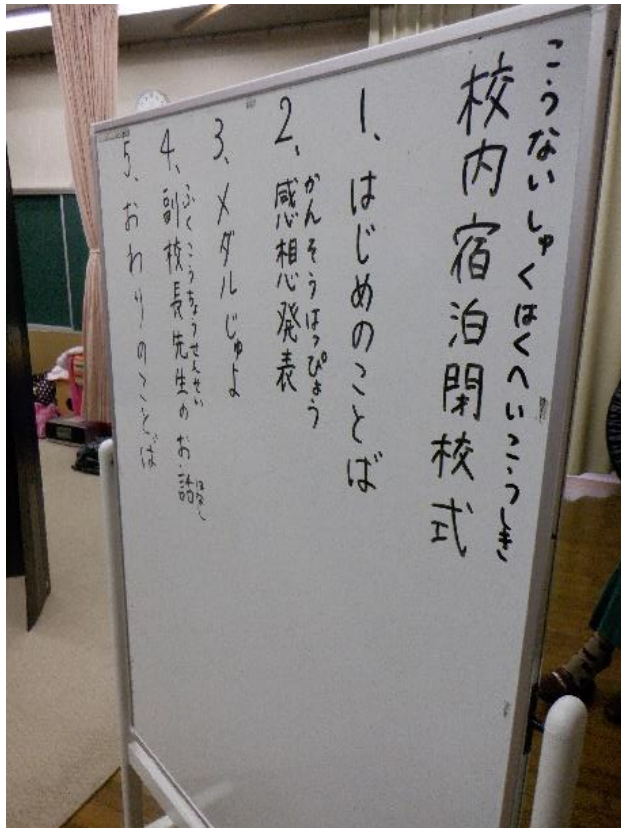 こうないしゅくはくへいこうしき
校内宿泊閉校式
1、はじめのことば
かんそうはっぴょう
2、感想発表
3、メダルじゅよ
ふくこうちょうせんせい はなし
4、副校長先生のお話
5、おわりのことば